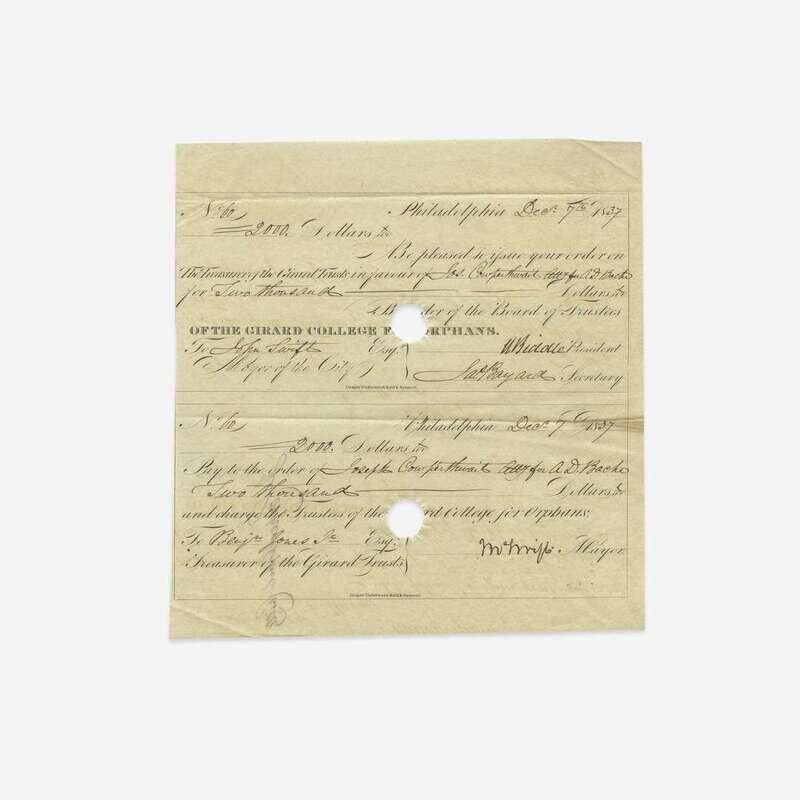 No. 60 Philadelphia Decr. 7th 1837
2000. Dollars
Be pleased to issue your order on
The Treasurer of the Girard Trusts in favour of Jos. Cowperthwait atty for A D. Bache
for Two thousand Dollars
By order of the Board of Trustees
OF THE GIRARD COLLEGE F ORPHANS.
To John Swift Esqr. N Biddle President
Mayor of the City Jas Bayard Secretary
No. 60 Philadelphia Decr. 7th 1837
2000. Dollars
Pay to the order of Joseph Cowperthwait atty for A. D. Bache
Two thousand Dollars
and charge the Trustees of the ard College for Orphans.
To Benjn. Jones Jr. Esqr. Swift Mayor
Treasurer of the Girard Trusts